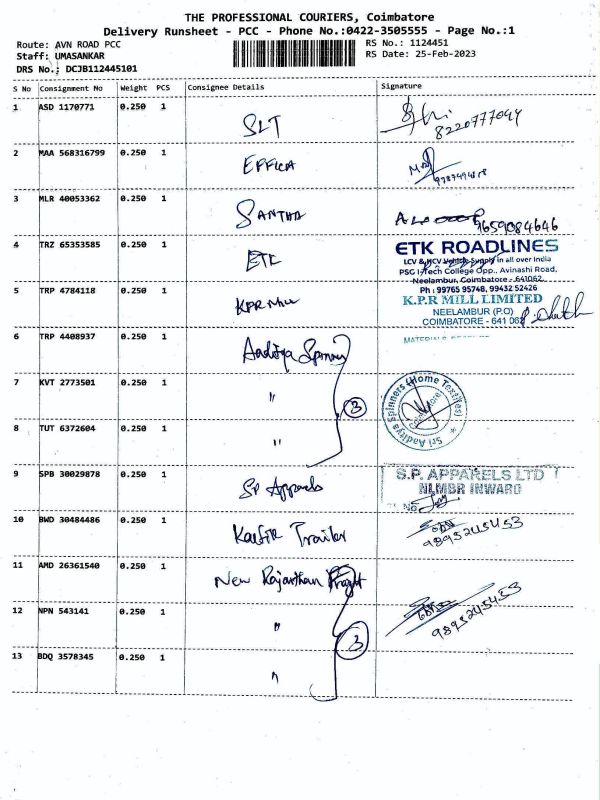 THE PROFESSIONAL COURIERS, Coimbatore
Delivery Runsheet - PCC - Phone No.:0422-3505555 - Page No.:1
Route: AVN ROAD PCC
RS No.: 1124451
Staff: UMASANKAR
RS Date: 25-Feb-2023
DRS No.: DCJB112445101
S No Consignment No Weight PCS Consignee Details Signature
1 ASD 1170771 0.250 1 SLT
8220777094
2 MAA 568316799 0.250 1 EFFICA
3 MLR 40053362 0.250 1 SANTHA
9659084646
4 TRZ 65353585 0.250 1 ETK
ETK ROADLINES
LCV & HCV Vehicle Supply in all over India
PSG I-Tech College Opp., Avinashi Road,
Neelambur, Coimbatore - 641062.
Ph : 99765 95748, 99432 52426
5 TRP 4784118 0.250 1 KPR Mill
K.P.R MILL LIMITED
NEELAMBUR (P.O)
COIMBATORE - 641 062
6 TRP 4408937 0.250 1 Aaditya Spinners
7 KVT 2773501 0.250 1 "
3
Sri Aaditya Spinners (Home Textiles)
Coimbatore
8 TUT 6372604 0.250 1 "
9 SPB 30029878 0.250 1 SP Apparels
S.P. APPARELS LTD
NLMBR INWARD
10 BWD 30484486 0.250 1
9895245453
11 AMD 26361540 0.250 1 New Rajasthan
12 NPN 543141 0.250 1 "
3
9895245453
13 BDQ 3578345 0.250 1 "